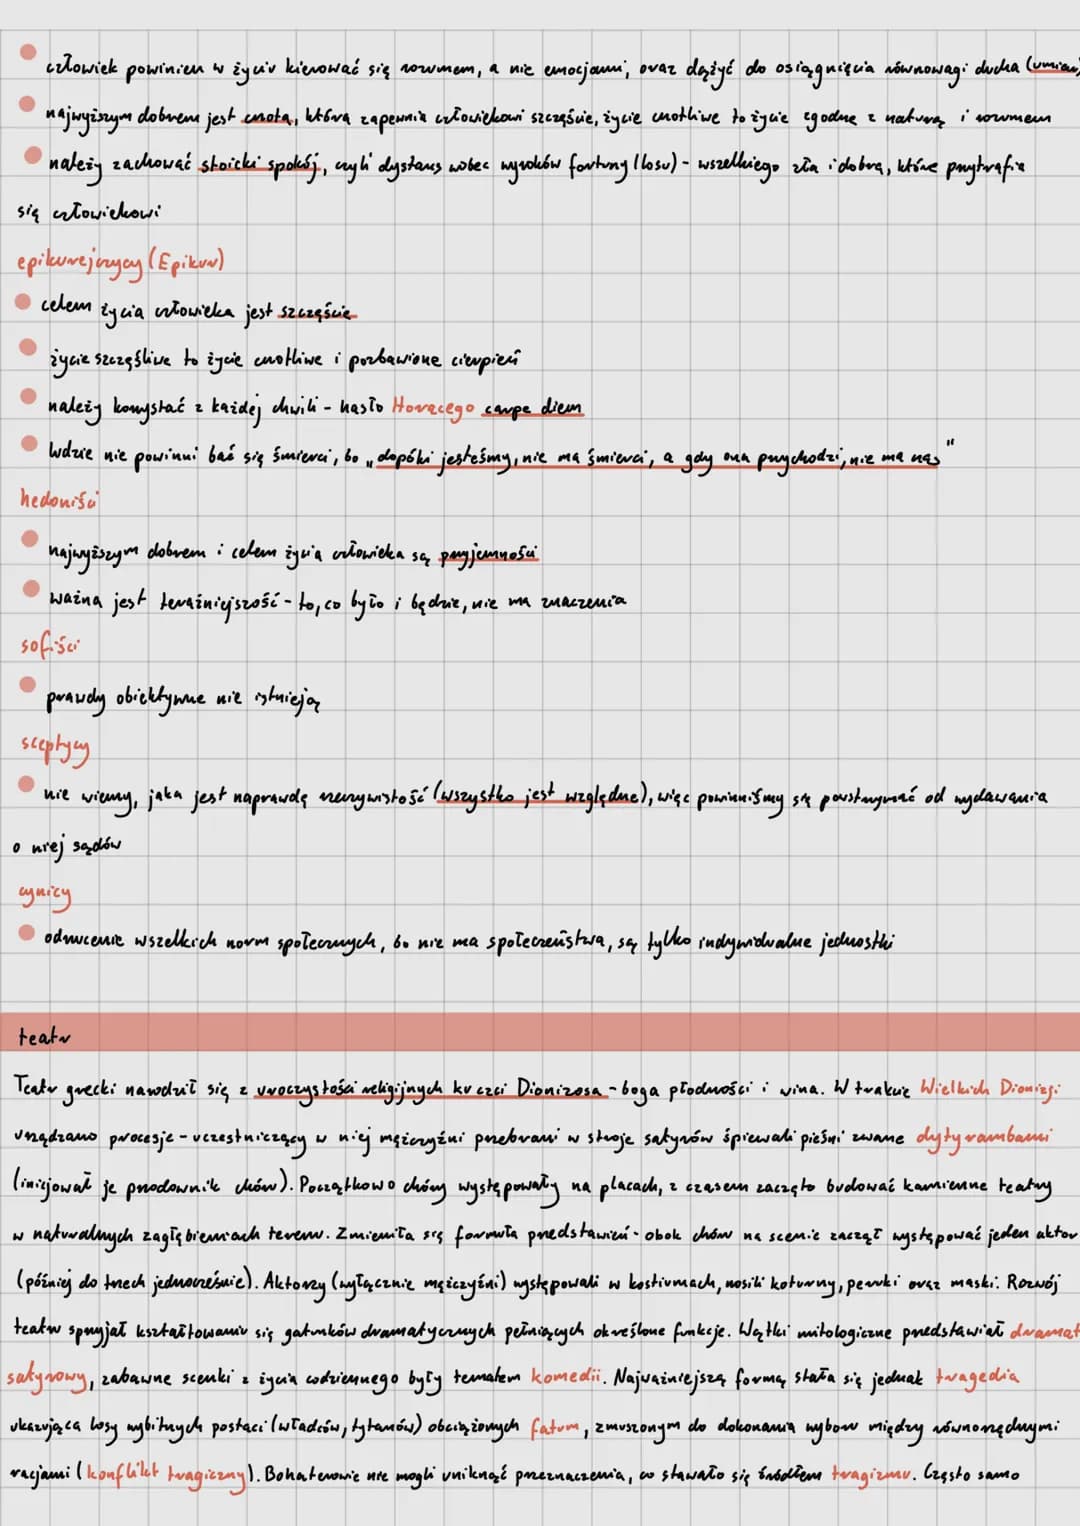 człowiek powinien w życiu kierować się rozumem, a nie emocjami, oraz dążyć do osiągnięcia równowagi ducha (umiar)
najwyższym dobrem jest cnota, która zapewnia człowiekowi szczęście, życie cnotliwe to życie zgodne z naturą i rozumem
należy zachować stoicki spokój, czyli dystans wobec wyroków fortuny (losu) - wszelkiego zła i dobra, które przytrafia
się człowiekowi
epikurejczycy (Epikur)
celem życia człowieka jest szczęście
życie szczęśliwe to życie cnotliwe i pozbawione cierpień
należy korzystać z każdej chwili - hasło Horacego carpe diem
ludzie nie powinni bać się śmierci, bo „dopóki jesteśmy, nie ma śmierci, a gdy ona przychodzi, nie ma nas"
hedoniści
najwyższym dobrem i celem życia człowieka są przyjemności
ważna jest teraźniejszość - to, co było i będzie, nie ma znaczenia
sofiści
prawdy obiektywne nie istnieją
sceptycy
nie wiemy, jaka jest naprawdę rzeczywistość (wszystko jest względne), więc powinniśmy się powstrzymać od wydawania
o niej sądów
cynicy
odrzucenie wszelkich norm społecznych, bo nie ma społeczeństwa, są tylko indywidualne jednostki
teatr
Teatr grecki narodził się z uroczystości religijnych ku czci Dionizosa - boga płodności i wina. W trakcie Wielkich Dionizji
urządzano procesje - uczestniczący w niej mężczyźni przebrani w stroje satyrów śpiewali pieśni zwane dytyrambami
(inicjował je przodownik chóru). Początkowo chóry występowały na placach, z czasem zaczęto budować kamienne teatry
w naturalnych zagłębieniach terenu. Zmieniła się formuła przedstawień - obok chóru na scenie zaczął występować jeden aktor
(później do trzech jednocześnie). Aktorzy (wyłącznie mężczyźni) występowali w kostiumach, nosili koturny, peruki oraz maski. Rozwój
teatru sprzyjał kształtowaniu się gatunków dramatycznych pełniących określone funkcje. Wątki mitologiczne przedstawiał dramat
satyrowy, zabawne scenki z życia codziennego były tematem komedii. Najważniejszą formą stała się jednak tragedia
ukazująca losy wybitnych postaci (władców, tytanów) obciążonych fatum, zmuszonym do dokonania wyboru między równorzędnymi
racjami (konflikt tragiczny). Bohaterowie nie mogli uniknąć przeznaczenia, co stawało się źródłem tragizmu. Często samo